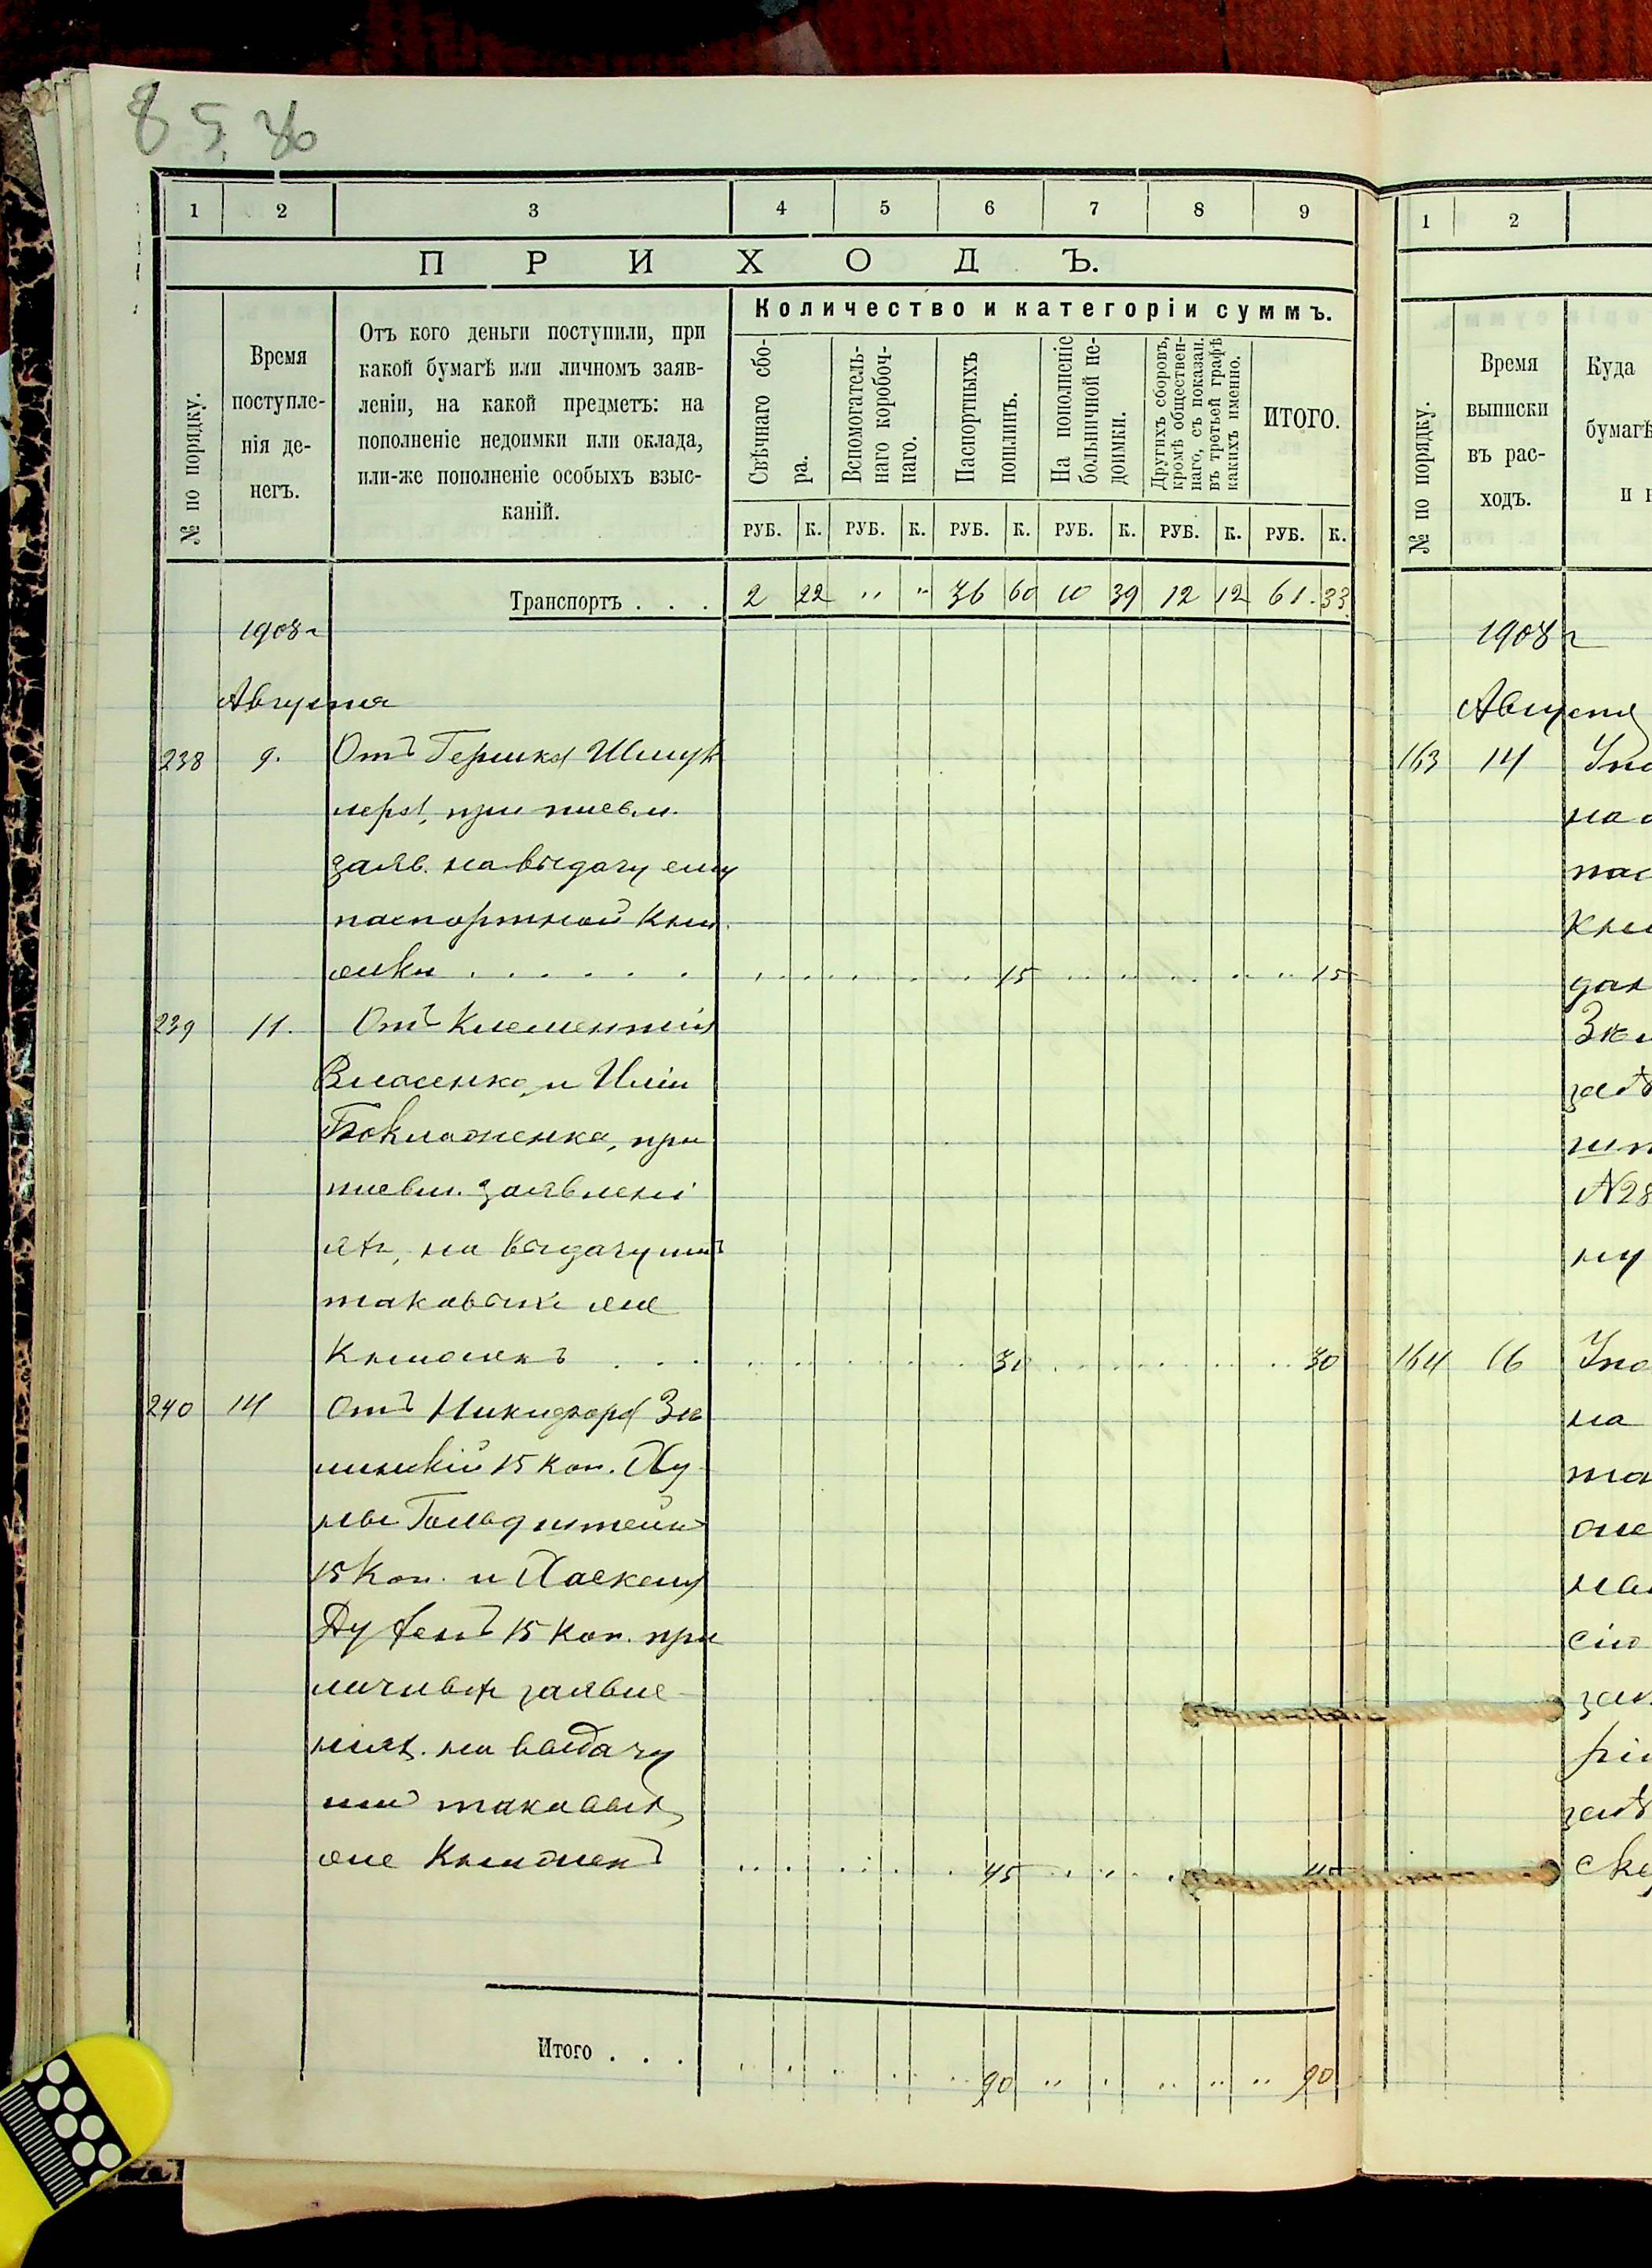 85, 86
1 2 3 4 5 6 7 8 9
ПРИХОДЪ.
№ по порядку.
Время
поступле-
нія де-
негъ.
Отъ кого деньги поступили, при
какой бумагѣ или личномъ заяв-
леніи, на какой предметъ: на
пополненіе недоимки или оклада,
или-же пополненіе особыхъ взыс-
каній.
Количество и категоріи суммъ.
Свѣчнаго сбо-
ра.
Вспомогатель-
наго коробоч-
наго.
Паспортныхъ
пошлинъ.
На пополненіе
больничной не-
доимки.
Другихъ сборовъ,
кромѣ обществен-
наго, съ показан.
въ третьей графѣ
какихъ именно.
ИТОГО.
РУБ. К. РУБ. К. РУБ. К. РУБ. К. РУБ. К. РУБ. К.
Транспортъ . . . 2 22 " " 36 60 10 39 12 12 61. 33
1908 г
Августа
238 9. Отъ Гершка Шмук
лера, при письм.
заяв. на выдачу ему
паспортной кни
жки . . . . . . 15 15
239 11. Отъ Клементія
Власенко, и Иліи
Боклаженко, при
письм. заявлені
яхъ, на выдачу имъ
таковыхъ же
книжекъ . . . 30 30
240 14 Отъ Никифора
15 коп.
Гольдштейнъ
15 коп. и
15 коп. при
личныхъ заявле
ніяхъ на выдачу
имъ таковыхъ
же книжекъ 45 45
Итого . . . 90 90
1 2
№ по порядку.
Время
выписки
въ рас-
ходъ.
Куда
бумагѣ
и н
1908 г
Августа
163 14
на
пас
кни
№ 28
ну
164 16
на